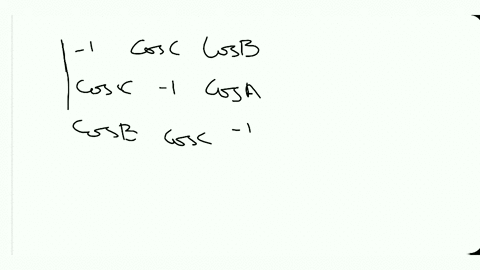 -1 cosC CosB
cosC -1 cosA
cosB cosC -1